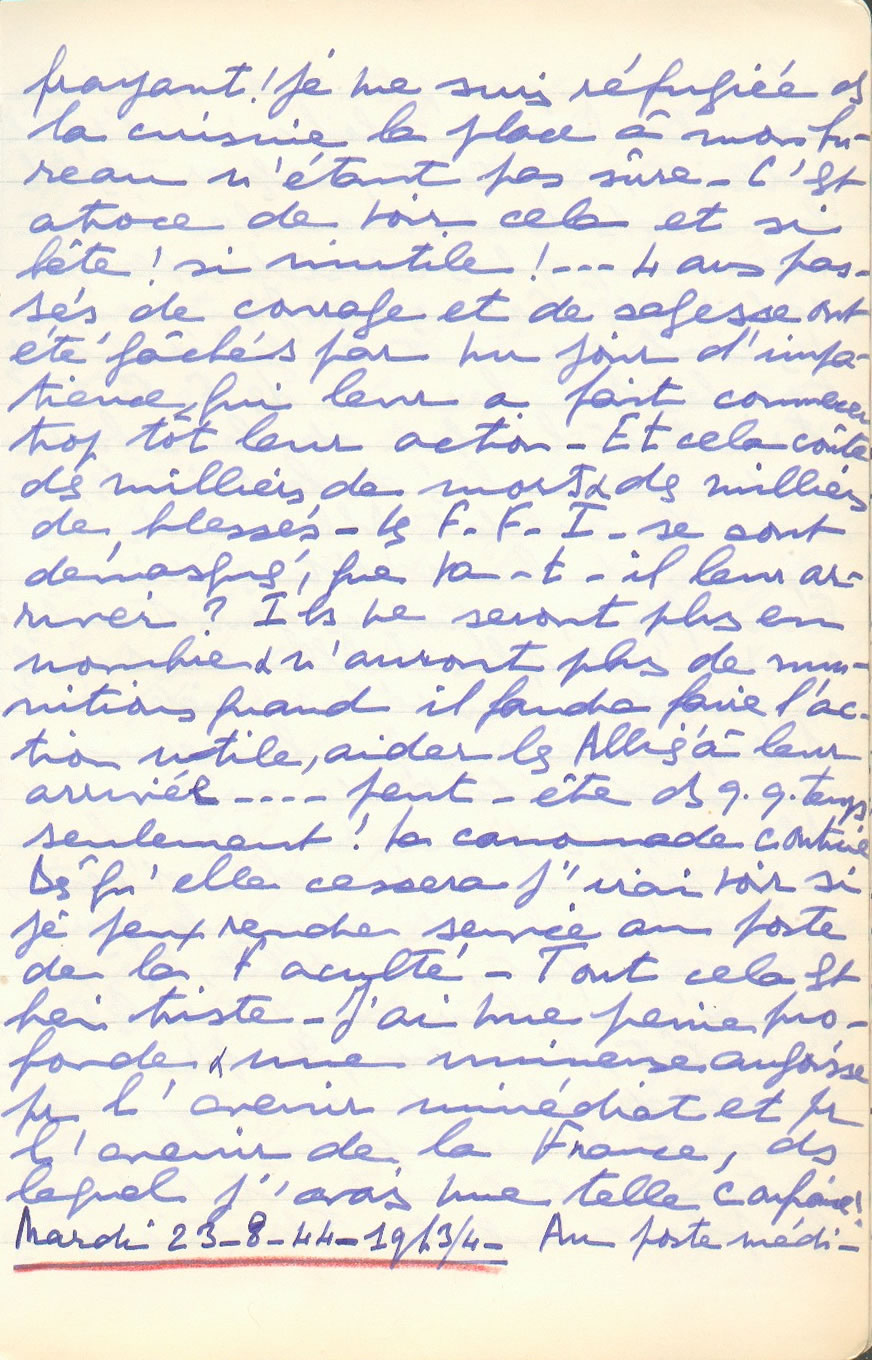 frayant ! Je me suis réfugiée ds
la cuisine la place à mon bu-
reau n'étant pas sûre - C'est
atroce de voir cela et si
bête ! si inutile ! --- 4 ans pas-
sés de courage et de sagesse ont
été gâchés par un jour d'impa-
tience, qui leur a fait commencer
trop tôt leur action - Et cela coûte
des milliers de morts & des milliers
de blessés - les F-F-I - se sont
démasqués, que va-t-il leur ar-
river ? Ils ne seront plus en
nombre & n'auront plus de mu-
nitions quand il faudra faire l'ac-
tion utile, aider les Alliés à leur
arrivée ---- peut-être ds q.q. temps
seulement ! la canonnade continue
Dès qu'elle cessera j'irai voir si
je peux rendre service au poste
de la Faculté - Tout cela est
bien triste - J'ai une peine pro-
fonde & une immense angoisse
pr l'avenir immédiat et pr
l'avenir de la France, ds
lequel j'avais une telle confiance !
Mardi 23-8-44-19h3/4- Au poste médi-